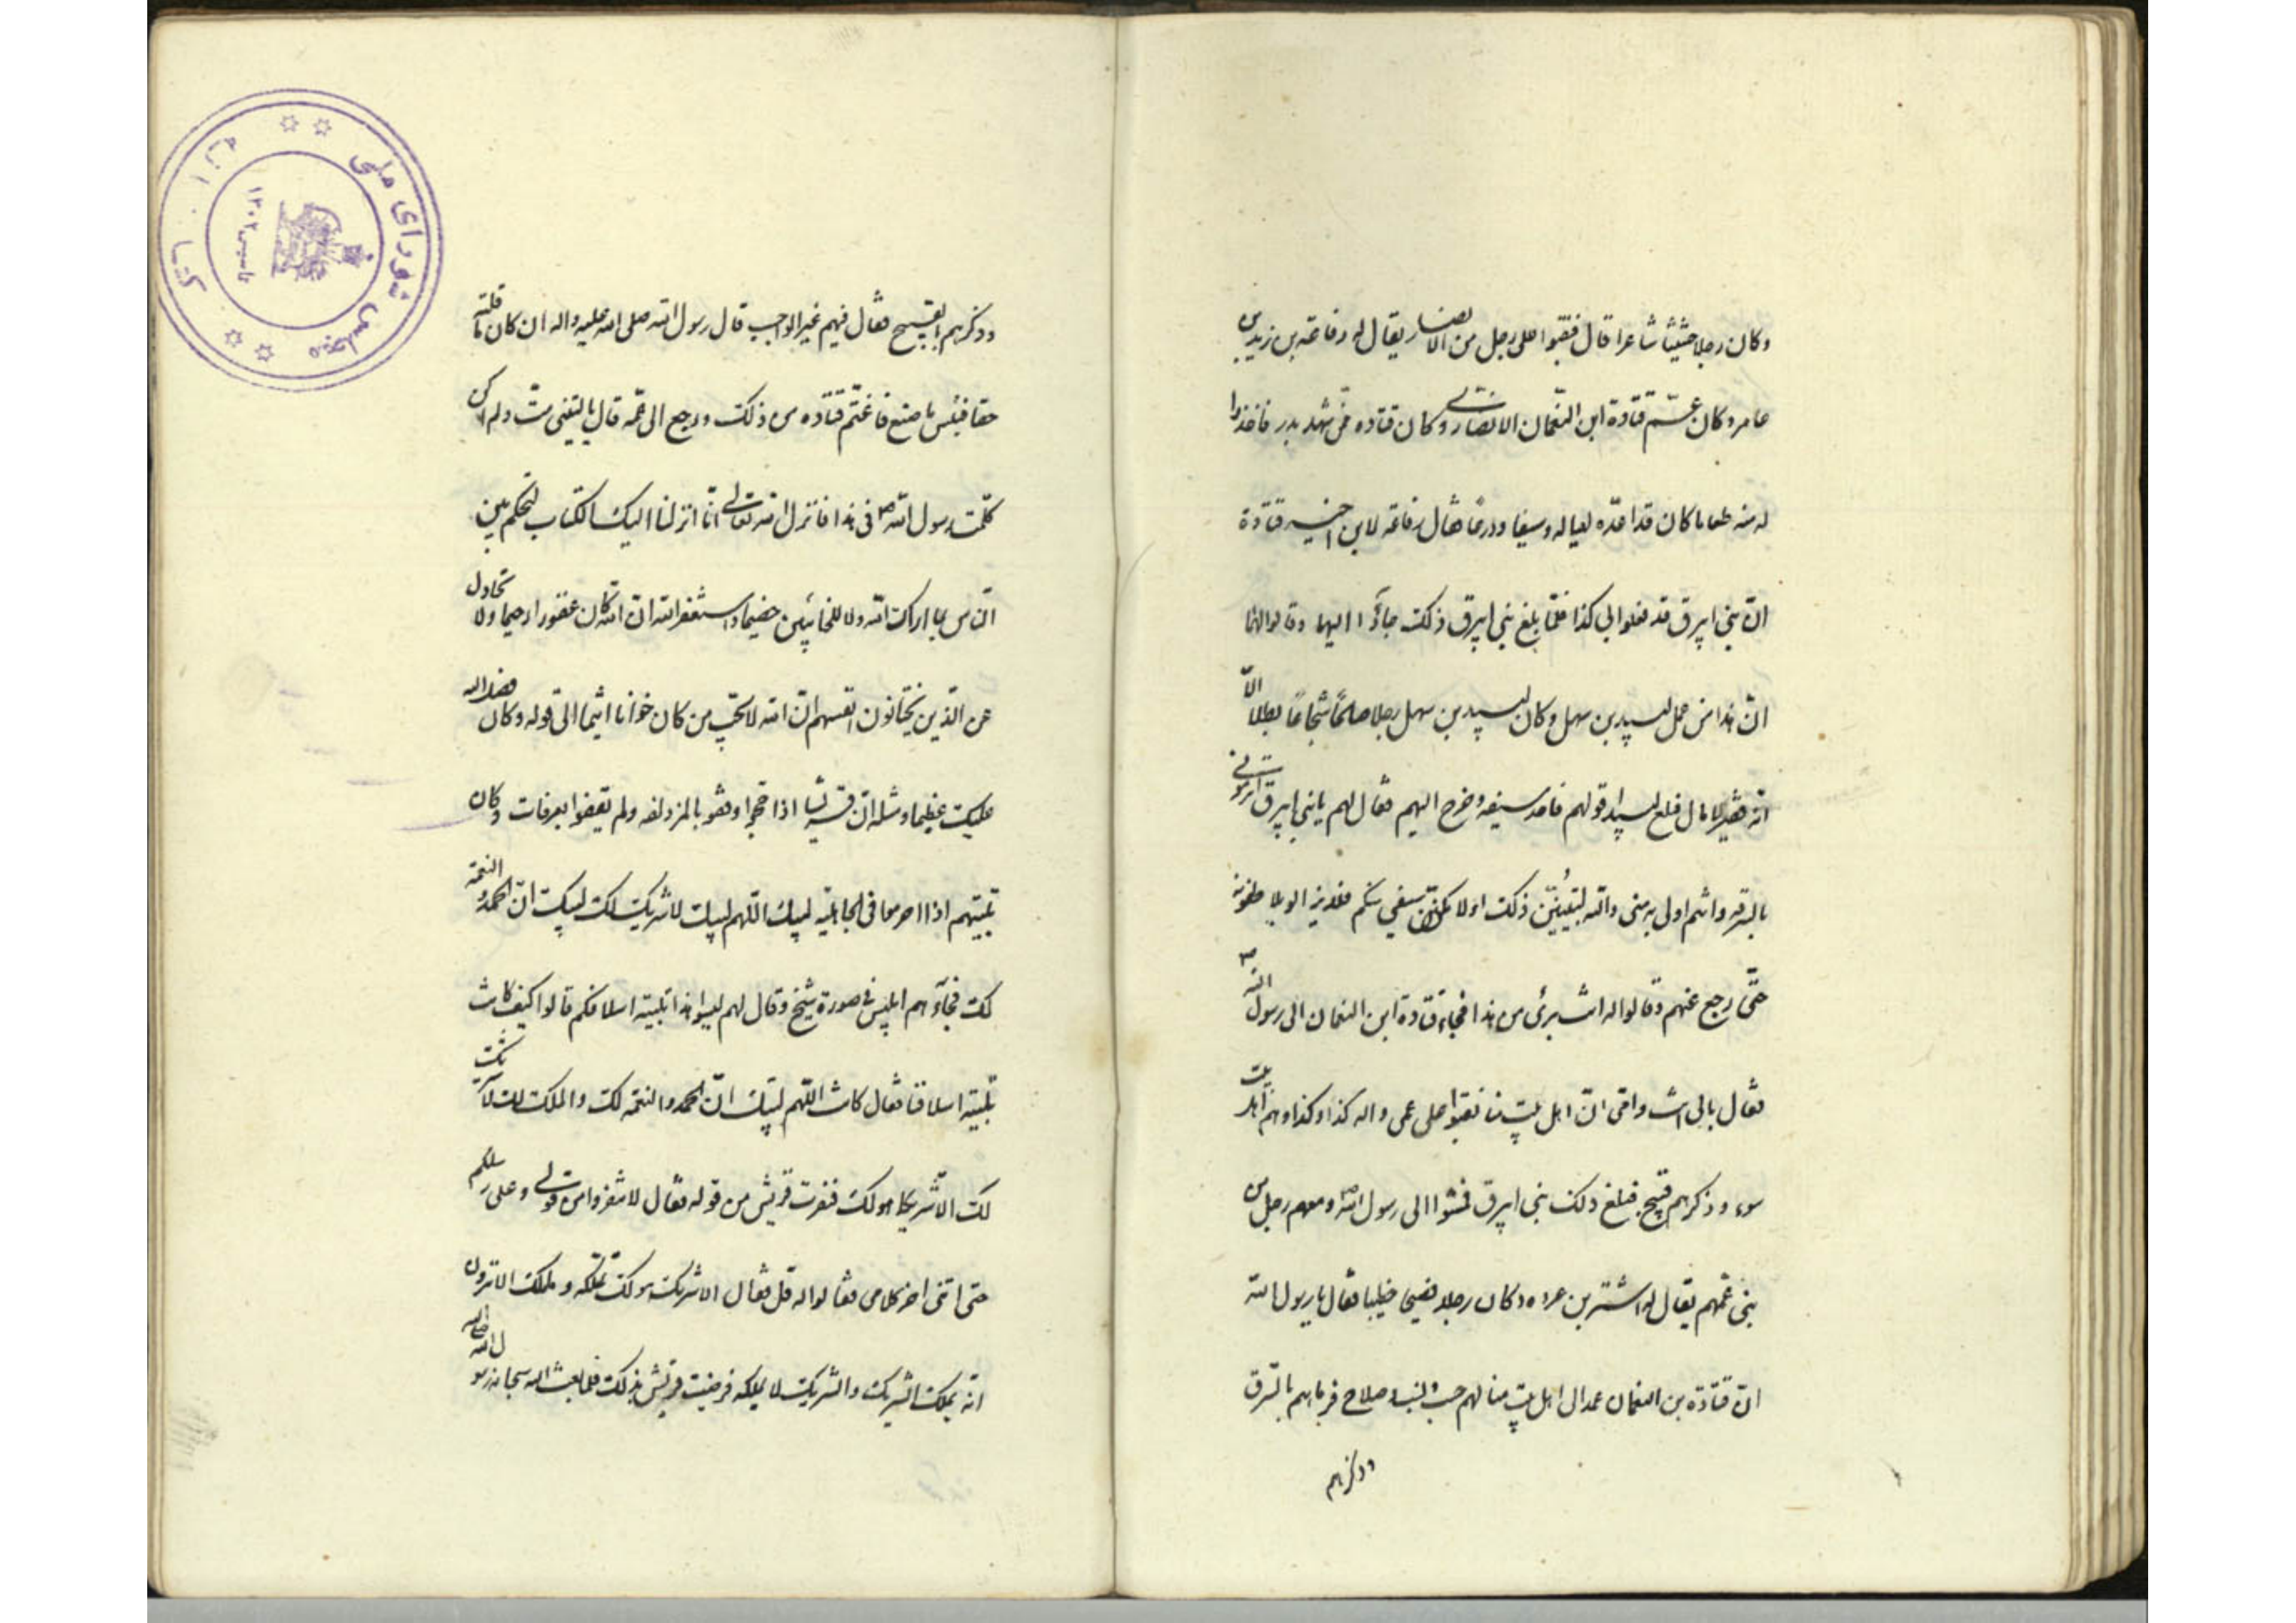 وكان رجلا خبيثا شاعرا قال فنقبوا على رجل من الانصار يقال له رفاعة بن زيد بن
عامر وكان عمّ قتادة ابن النعمان الانصاري وكان قتاده ممّن شهد بدر فاخذوا
له منه طعاما كان قد اعدّه لعياله وسيفا ودرعا فقال رفاعة لابن اخيه قتادة
انّ بني ابيرق قد فعلوا بي كذا فلمّا بلغ بني ابيرق ذلك جاؤا اليهما وقالوا لهما
انّ هذا من عمل لبيد بن سهل وكان لبيد بن سهل رجلا صالحًا شجاعًا بطلاً الاّ
انّه فقير لا مال فبلغ لبيد قولهم فاخذ سيفه وخرج اليهم فقال لهم يا بني ابيرق اترمونني
بالسرقه وانتم اولى به منى والله لتبيّنن ذلك اولا مكنن سيفي منكم فلم يزالوا يلاطفونه
حتّى رجع عنهم وقالوا له انت برئ من هذا فجاء قتادة ابن النعمان الى رسول الله ص
فقال بابى انت وامّى انّ اهل بيت منا نقبوا على عمى واله كذا وكذا وهم اهل بيت
سوء وذكرهم بقبيح فبلغ ذلك بني ابيرق فمشوا الى رسول الله ص ومعهم رجل من
بني عمّهم يقال له اشتر بن عروه وكان رجلا فصيحا خطيبا فقال يا رسول الله
انّ قتادة بن النعمان عمد الى اهل بيت منا لهم حسب ونسب وصلاح فرماهم بالسّرق
وذكرهم
وذكرهم بالقبيح فقال فيهم غير الواجب قال رسول الله صلى الله عليه واله ان كان ما قلته
حقا فبئس ما صنع فاغتمّ قتاده من ذلك ورجع الى عمّه قال يا ليتنى متّ ولم اكن
كلّمت رسول الله ص في هذا فانزل الله تعالى انّا انزلنا اليك الكتاب لتحكم بين
الناس بما اراك الله ولا للخائنين خصيما واستغفر الله انّ الله كان غفورا رحيما ولا تجادل
عن الذّين يختانون انفسهم انّ الله لا يحبّ من كان خوانا اثيما الى قوله وكان فضل الله
عليك عظيما ومثله انّ قريشا اذا حجوا وقفوا بالمزدلفه ولم يقفوا بعرفات وكان
تلبيتهم اذا احرموا في الجاهليّه لبيك اللّهم لبيك لا شريك لك لبيك انّ الحمد والنعمة
لك فجآءهم ابليس في صورة شيخ وقال لهم ليس هذا تلبية اسلافكم قالوا كيف كانت
تلبية اسلافنا فقال كانت اللّهم لبّيك انّ الحمد والنعمة لك والملك لك لا شريك
لك الاّ شريكا هو لك فنفرت قريش من قوله فقال لا تنفروا من قولي وعلى رسلكم
حتى اتى اخر كلامى فقالوا له قل فقال الا شريك هو لك تملكه وما ملك الا ترون
انّه يملك الشريك والشريك لا يملكه فرضيت قريش بذلك فلمّا بعث الله سبحانه رسول الله صلى الله
كتابخانه مجلس شورای ملی
تاسیس ۱۳۰۲